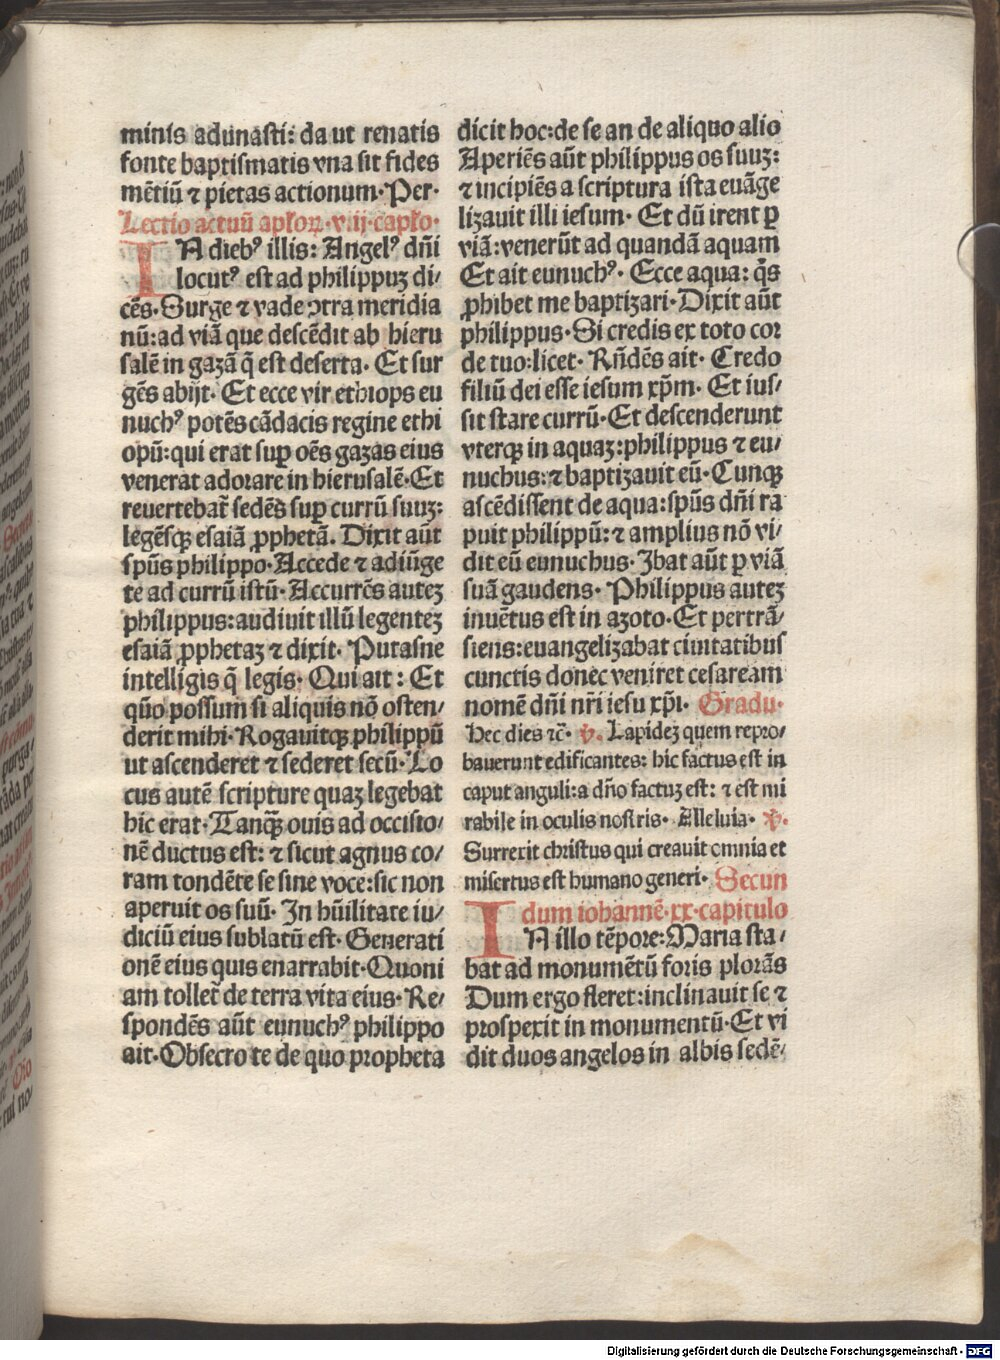 minis adunasti: da ut renatis
fonte baptismatis vna sit fides
mētiū ⁊ pietas actionum·Per·
Lectio actuū aploꝝ·viij·caplo·
IN diebꝰ illis: Angelꝰ dñi
locutꝰ est ad philippuꝫ di⸗
cēs·Surge ⁊ vade ꝯtra meridia
nū:ad viā que descēdit ab hieru
salē in gazā q̄ est deserta· Et sur
gēs abijt· Et ecce vir ethiops eu
nuchꝰ potēs cādacis regine ethi
opū:qui erat suꝑ oēs gazas eius
venerat adorare in hierusalē·Et
reuertebat᷑ sedēs suꝑ currū suuꝫ:
legēsqꝫ esaiā ꝓphetā. Dixit aūt
spūs philippo·Accede ⁊ adiūge
te ad currū istū·Accurrēs auteꝫ
philippus:audiuit illū legenteꝫ
esaiā ꝓphetaꝫ ⁊ dixit· Putasne
intelligis q̄ legis· Qui ait: Et
qūo possum si aliquis nō osten/
derit mihi·Rogauitqꝫ philippū
ut ascenderet ⁊ sederet secū·Lo
cus autē scripture quaꝫ legebat
hic erat·Tanqꝫ̄ ouis ad occisio/
nē ductus est: ⁊ sicut agnus co/
ram tondēte se sine voce:sic non
aperuit os suū· In hūilitate iu/
diciū eius sublatū est· Generati
onē eius quis enarrabit·Quoni
am tollet᷑ de terra vita eius·Re/
spondēs aūt eunuchꝰ philippo
ait·Obsecro te de quo propheta
dicit hoc:de se an de aliquo alio
Aperiēs aūt philippus os suuꝫ:
⁊ incipiēs a scriptura ista euāge
lizauit illi iesum· Et dū irent ꝑ
viā:venerūt ad quandā aquam
Et ait eunuchꝰ· Ecce aqua: q̄s
ꝓhibet me baptizari·Dixit aūt
philippus·Si credis ex toto cor
de tuo:licet· Rñdēs ait· Credo
filiū dei esse iesum xp̄m· Et ius/
sit stare currū·Et descenderunt
vterqꝫ in aquaꝫ:philippus ⁊ eu/
nuchus:⁊ baptizauit eū·Cunqꝫ
ascēdissent de aqua:spūs dñi ra
puit philippū:⁊ amplius nō vi/
dit eū eunuchus·Ibat aūt ꝑ viā
suā gaudens· Philippus auteꝫ
inuētus est in azoto·Et pertrā/
siens:euangelizabat ciuitatibus
cunctis donec veniret cesaream
nomē dñi nr̄i iesu xp̄i· Gradu·
Hec dies ⁊c̄· ℣. Lapideꝫ quem repro/
bauerunt edificantes: hic factus est in
caput anguli:a dño factuꝫ est: ⁊ est mi
rabile in oculis nostris· Alleluia· ℣.
Surrexit christus qui creauit omnia et
misertus est humano generi· Secun
dum iohannē·xx·capitulo
IN illo tēpore:Maria sta/
bat ad monumētū foris plorās
Dum ergo fleret:inclinauit se ⁊
prospexit in monumentū·Et vi
dit duos angelos in albis sedē/
Digitalisierung gefördert durch die Deutsche Forschungsgemeinschaft · DFG